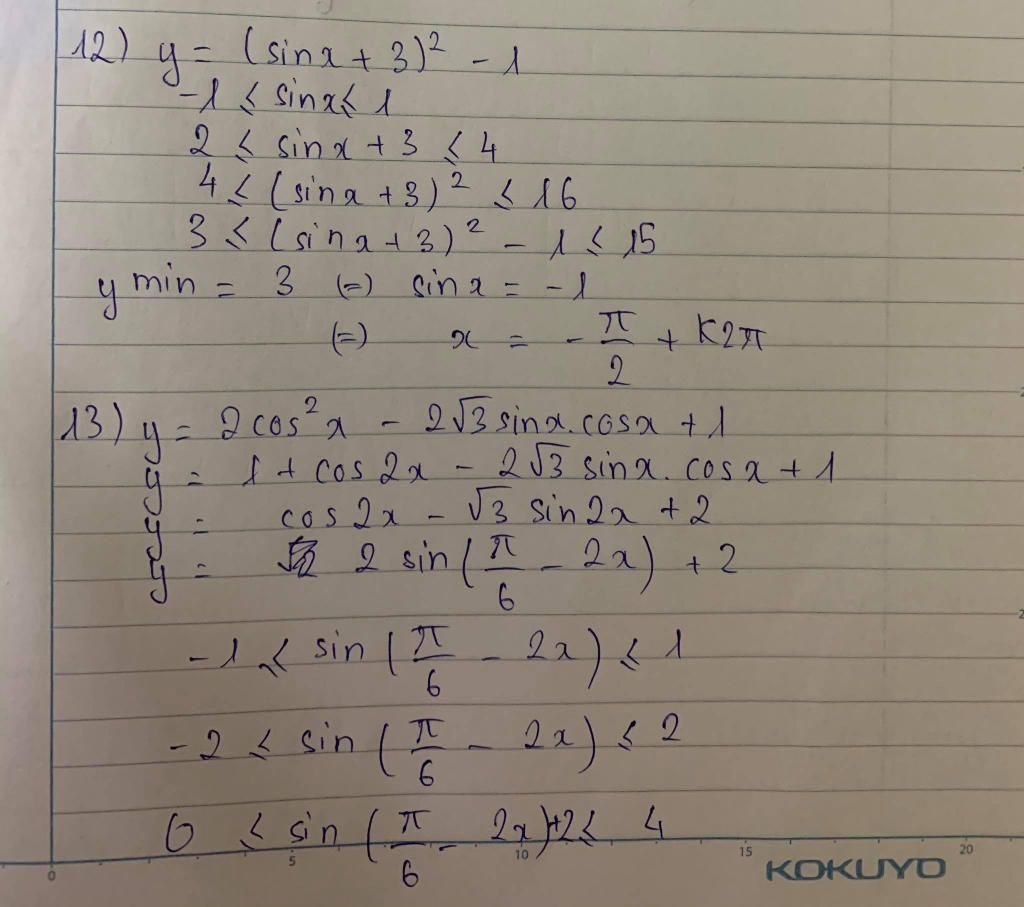 12) y = (sinx + 3)² - 1
-1 ≤ sinx ≤ 1
2 ≤ sinx + 3 ≤ 4
4 ≤ (sinx + 3)² ≤ 16
3 ≤ (sinx + 3)² - 1 ≤ 15
y min = 3 (=) sinx = -1
(=) x = -π/2 + K2π
13) y = 2cos²x - 2√3 sinx.cosx + 1
y = 1 + cos2x - 2√3 sinx.cosx + 1
y = cos2x - √3 sin2x + 2
y = 2 sin(π/6 - 2x) + 2
-1 ≤ sin(π/6 - 2x) ≤ 1
-2 ≤ sin(π/6 - 2x) ≤ 2
0 ≤ sin(π/6 - 2x)+2 ≤ 4
0 5 10 15 20
KOKUYO